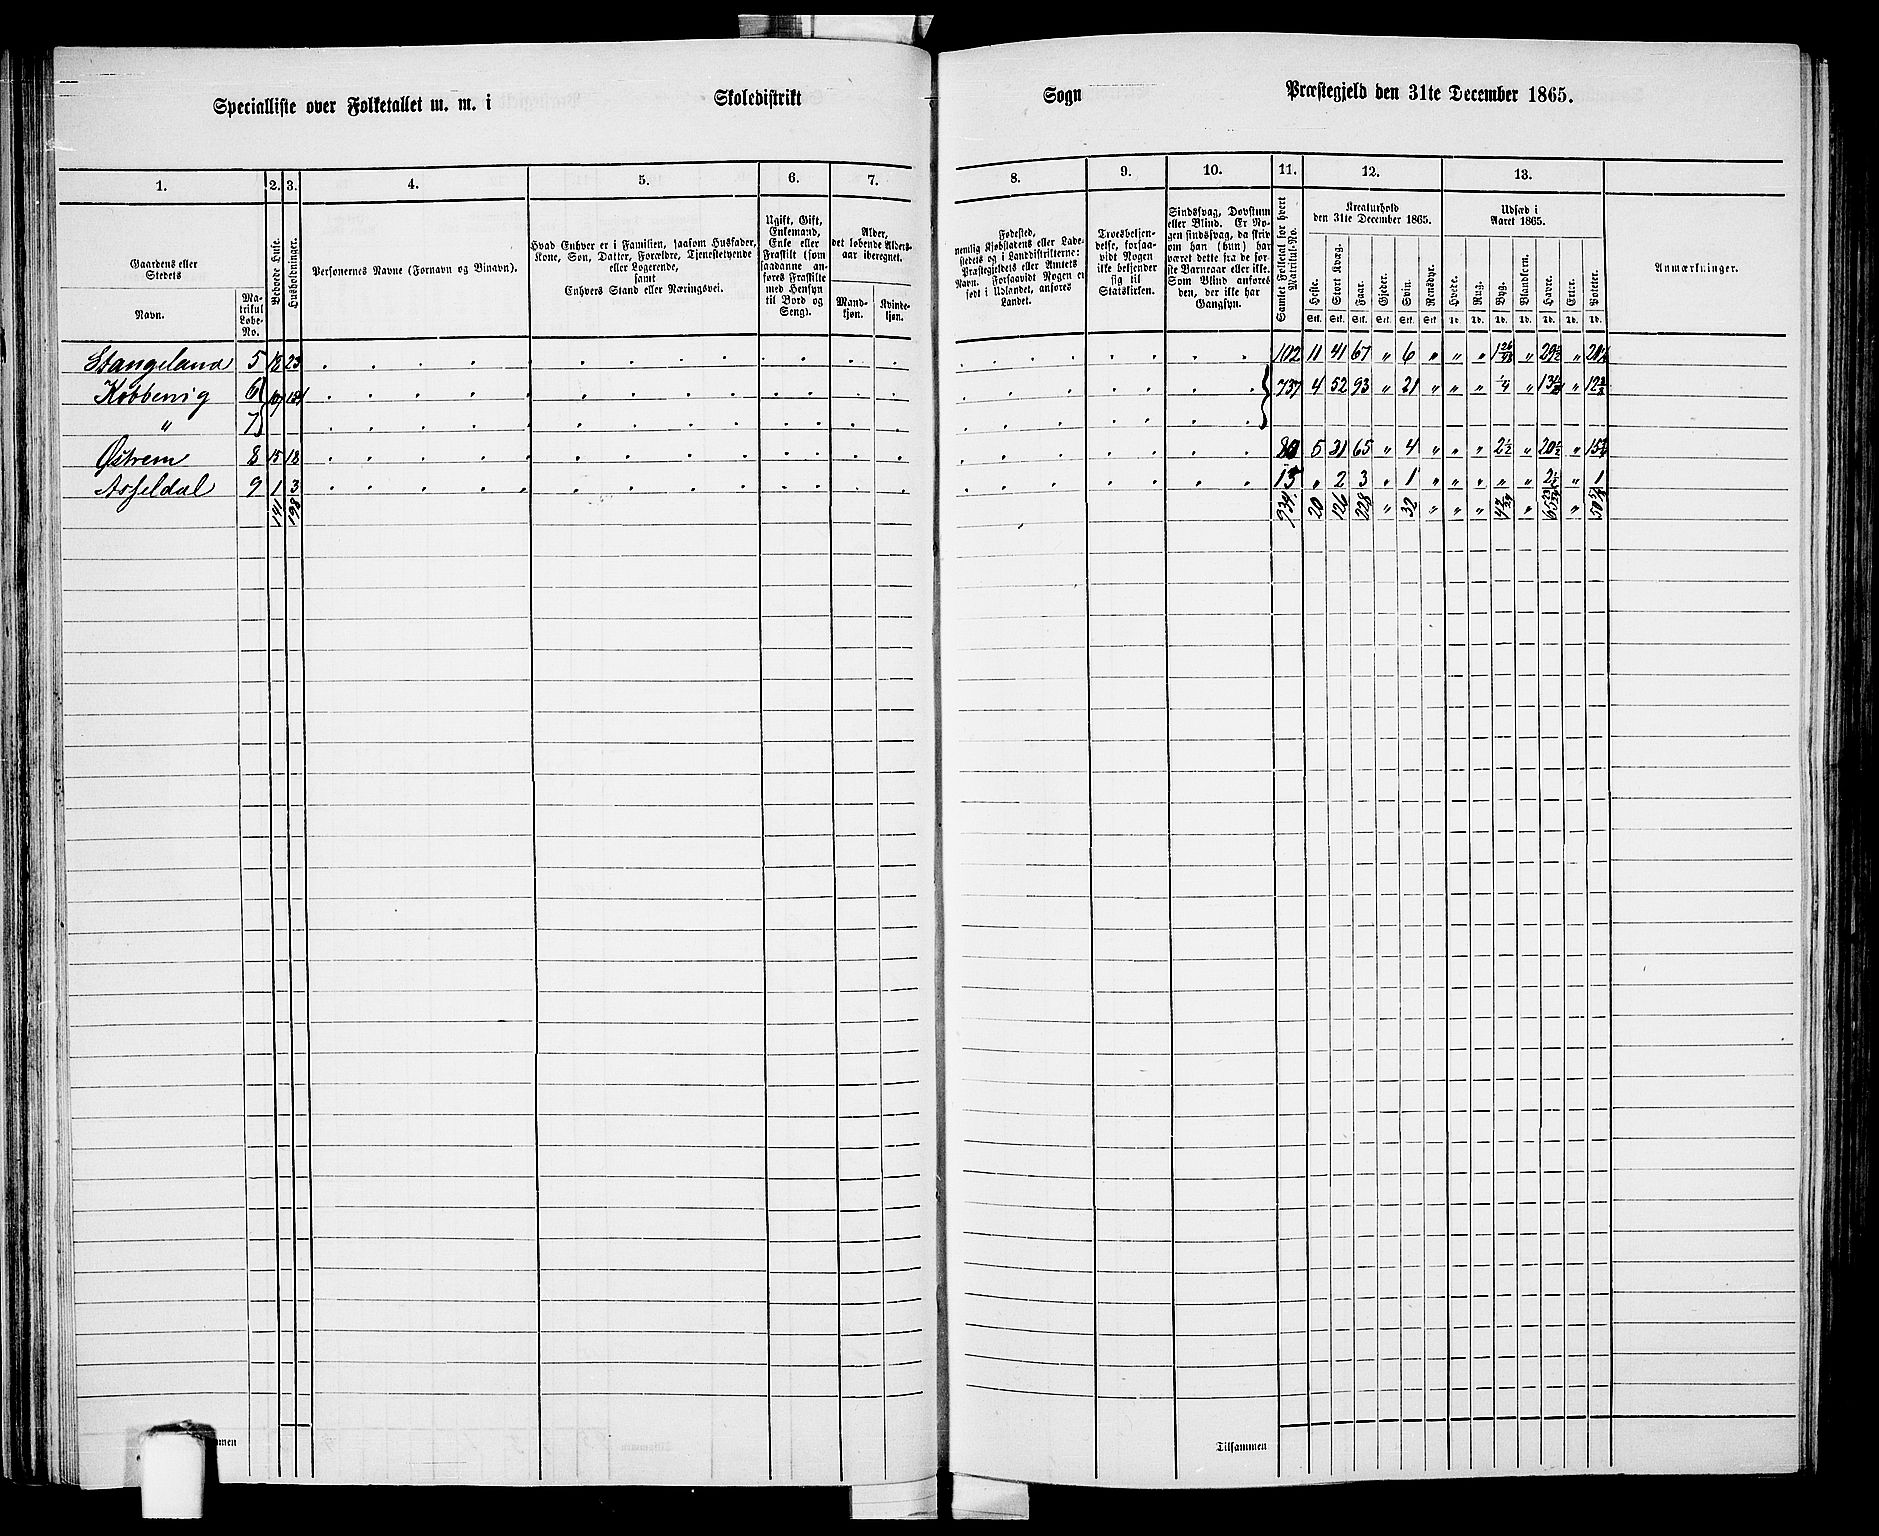 Specialliste over Folketallet m. m. i Skoledistrikt Sogn Præstegjeld den 31te December 1865.
1. 2. 3. 4. 5. 6. 7. 8. 9. 10. 11. 12. 13.
Gaardens eller
Stedets
Navn.
Ma-
trikul
Løbe-
No.
Beboede Huse.
Husholdninger.
Personernes Navne (Fornavn og Binavn).
Hvad Enhver er i Familien, saasom Husfader,
Kone, Søn, Datter, Forældre, Tjenestetyende
eller Logerende,
samt
Enhvers Stand eller Næringsvei.
Ugift, Gift,
Enkemand,
Enke eller
Fraskilt (som
saadanne an-
føres Fraskilte
med Hensyn
til Bord og
Seng).
Alder,
det løbende Alders-
aar iberegnet.
Mand-
kjøn.
Kvinde-
kjøn.
Fødested,
nemlig Kjøbstadens eller Lade-
stedets og i Landdistrikterne:
Præstegjeldets eller Amtets
Navn. Forsaavidt Nogen er
født i Udlandet, anføres
Landet.
Troesbekjen-
delse, forsaa-
vidt Nogen
ikke bekjender
sig til
Statskirken.
Sindssvag, Døvstum
eller Blind. Er No-
gen sindssvag, da skriv
om han (hun) har
været dette fra de før-
ste Barneaar eller ikke.
Som Blind anføres
den, der ikke har
Gangsyn.
Samlet Folketal for hvert
Matrikul-No.
Kreaturhold
den 31te December 1865.
Heste. Stort Kvæg. Faar. Gjeder. Svin. Rensdyr.
Stk. Stk. Stk. Stk. Stk. Stk.
Udsæd i
Aaret 1865.
Hvede. Rug. Byg. Blandkorn. Havre. Erter. Poteter.
Td. Td. Td. Td. Td. Td. Td.
Anmærkninger.
Stangeland 5 18 23 102 11 41 67 " 6 " " " 1 " 29½ "
Kobbevig 6 737 4 52 93 " 21 " " " ¼ " "
" 7
Østrem 8 15 18 80 5 31 65 " 4 " " " 2½ " 20½ "
Asseldal 9 1 3 15 " 2 3 " 1 " " " " " 2½ " 1
141 198 934. 20 126 228 " 32 " " " "
Tilsammen